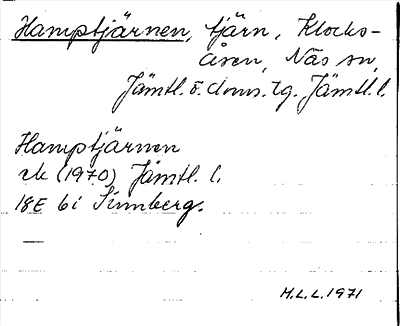 Hamptjärnen, tjärn, Klocks-
åsen, Näs sn,
Jämtl. ö. doms. tg. Jämtl. l.
Hamptjärnen
ek (1970) Jämtl. l.
18E 6i Sinnberg.
H.L.L. 1971